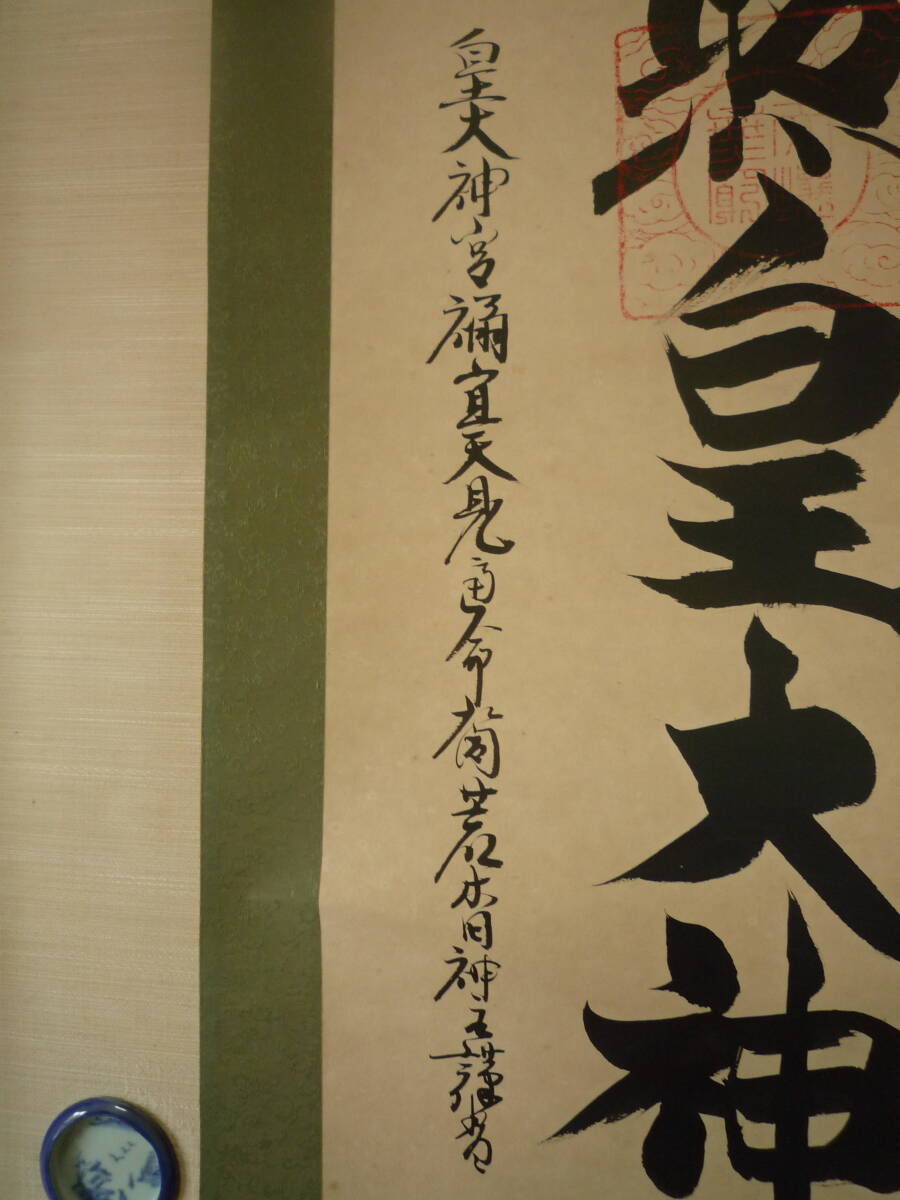 照皇大神
皇大神宮祢宜天見通命裔荒木田神主謹書